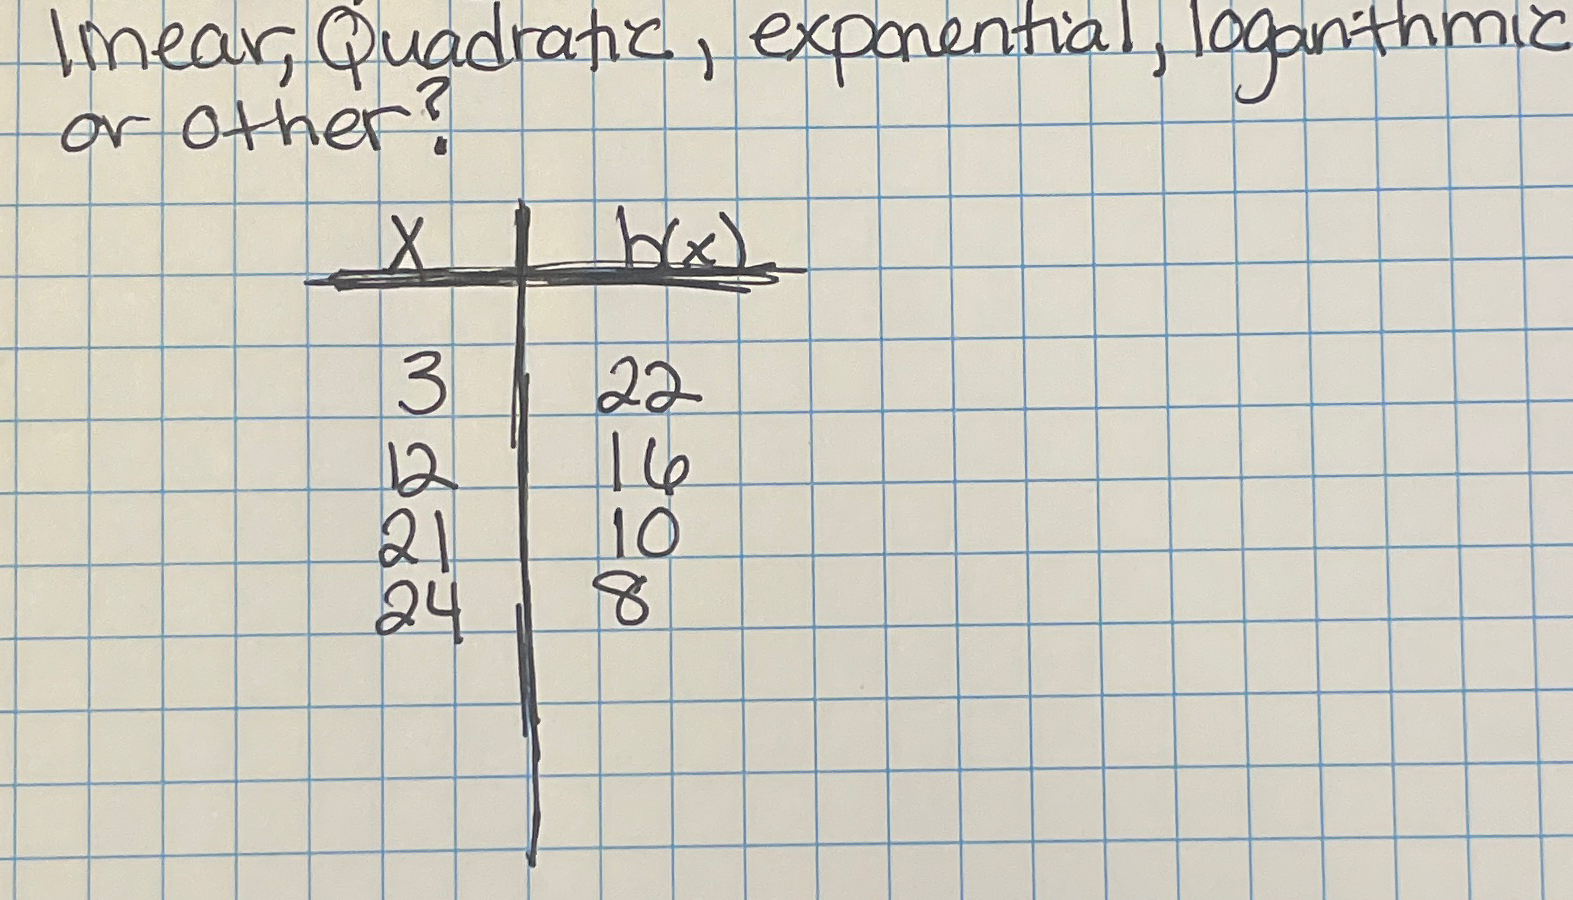 linear, Quadratic, exponential, logarithmic
or other?
x h(x)
3 22
12 16
21 10
24 8